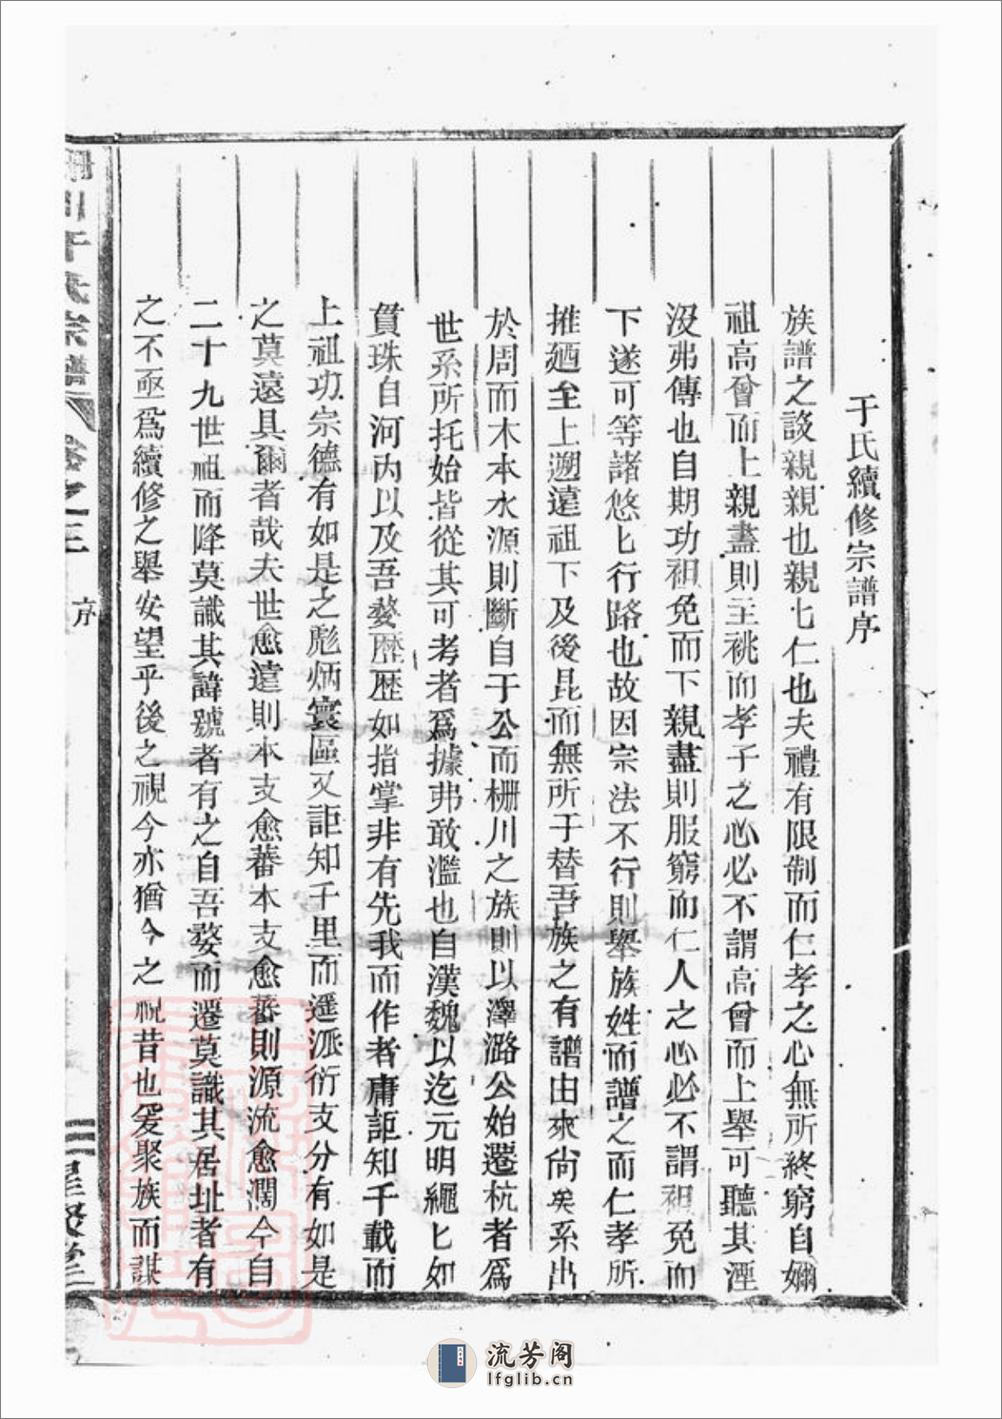 于氏續修宗譜序
族譜之談親親也親匕仁也夫禮有限制而仁孝之心無所終窮自禰
祖高曾而上親盡則主祧而孝子之心必不謂高曾而上舉可聽其湮
沒弗傳也自期功袒免而下親盡則服窮而仁人之心必不謂袒免而
下遂可等諸悠匕行路也故因宗法不行則舉族姓而譜之而仁孝所
推廼至上遡遠祖下及後昆而無所于替吾族之有譜由來尙矣系出
於周而木本水源則斷自于公而栅川之族則以澤潞公始遷杭者爲
世系所托始皆從其可考者爲據弗敢濫也自漢魏以迄元明繩匕如
貫珠自河內以及吾婺歷歷如指掌非有先我而作者庸詎知千載而
上祖功宗德有如是之彪炳寰區又詎知千里而遥派衍支分有如是
之莫遠具爾者哉夫世愈遠則本支愈蕃本支愈蕃則源流愈濶今自
二十九世祖而降莫識其諱號者有之自吾婺而遷莫識其居址者有
之不亟爲續修之舉安望乎後之視今亦猶今之視昔也爰聚族而謀
川于氏宗譜 卷之三 序
二
流芳阁
lfglib.cn